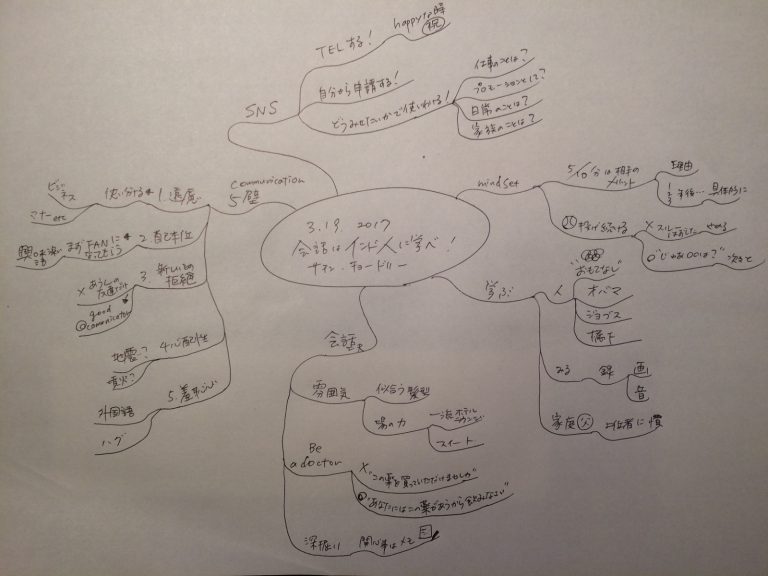 3.19 2017
会話はインド人に学べ!
サチン・チョードリー
SNS
TELする!
happyな時
祝
自分から申請する!
どうみせたいかで使いわける!
仕事のことは?
プロモーションとして?
日常のことは?
家族のことは?
mindset
5/10分は相手の
メリット
理由
1
2
3
年後… 具体的に
投げ続ける
×
やめる
"じゃあ〇〇は?"
学ぶ
人
おもてなし"
オバマ
ジョブス
橋下
みる
録
画
音
家庭 父
上位者に慣
会話
雰囲気
似合う髪型
場の力
一流ホテル
ラウンジ
スイート
Be
a doctor
×
"この薬を買っていただけませんか"
"あなたにはこの薬があうから飲みなさい"
深掘り
関心事はメモ
communication
5壁
1. 遠慮
使い分ける
ビジネス
マナー etc
2. 自己本位
まずFANに
なってもらう
3. 新しいもの
拒絶
×
good
communicator
4. 心配性
地震?
噴火?
5. 羞恥心
外国語
ハグ